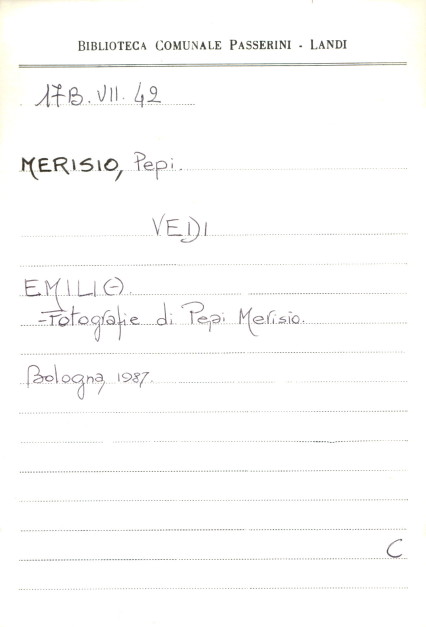 BIBLIOTECA COMUNALE PASSERINI - LANDI
17B.VII.42
MERISIO, Pepi.
VEDI
EMILI(-).
-Fotografie di Pepi Merisio.
Bologna, 1987.
C